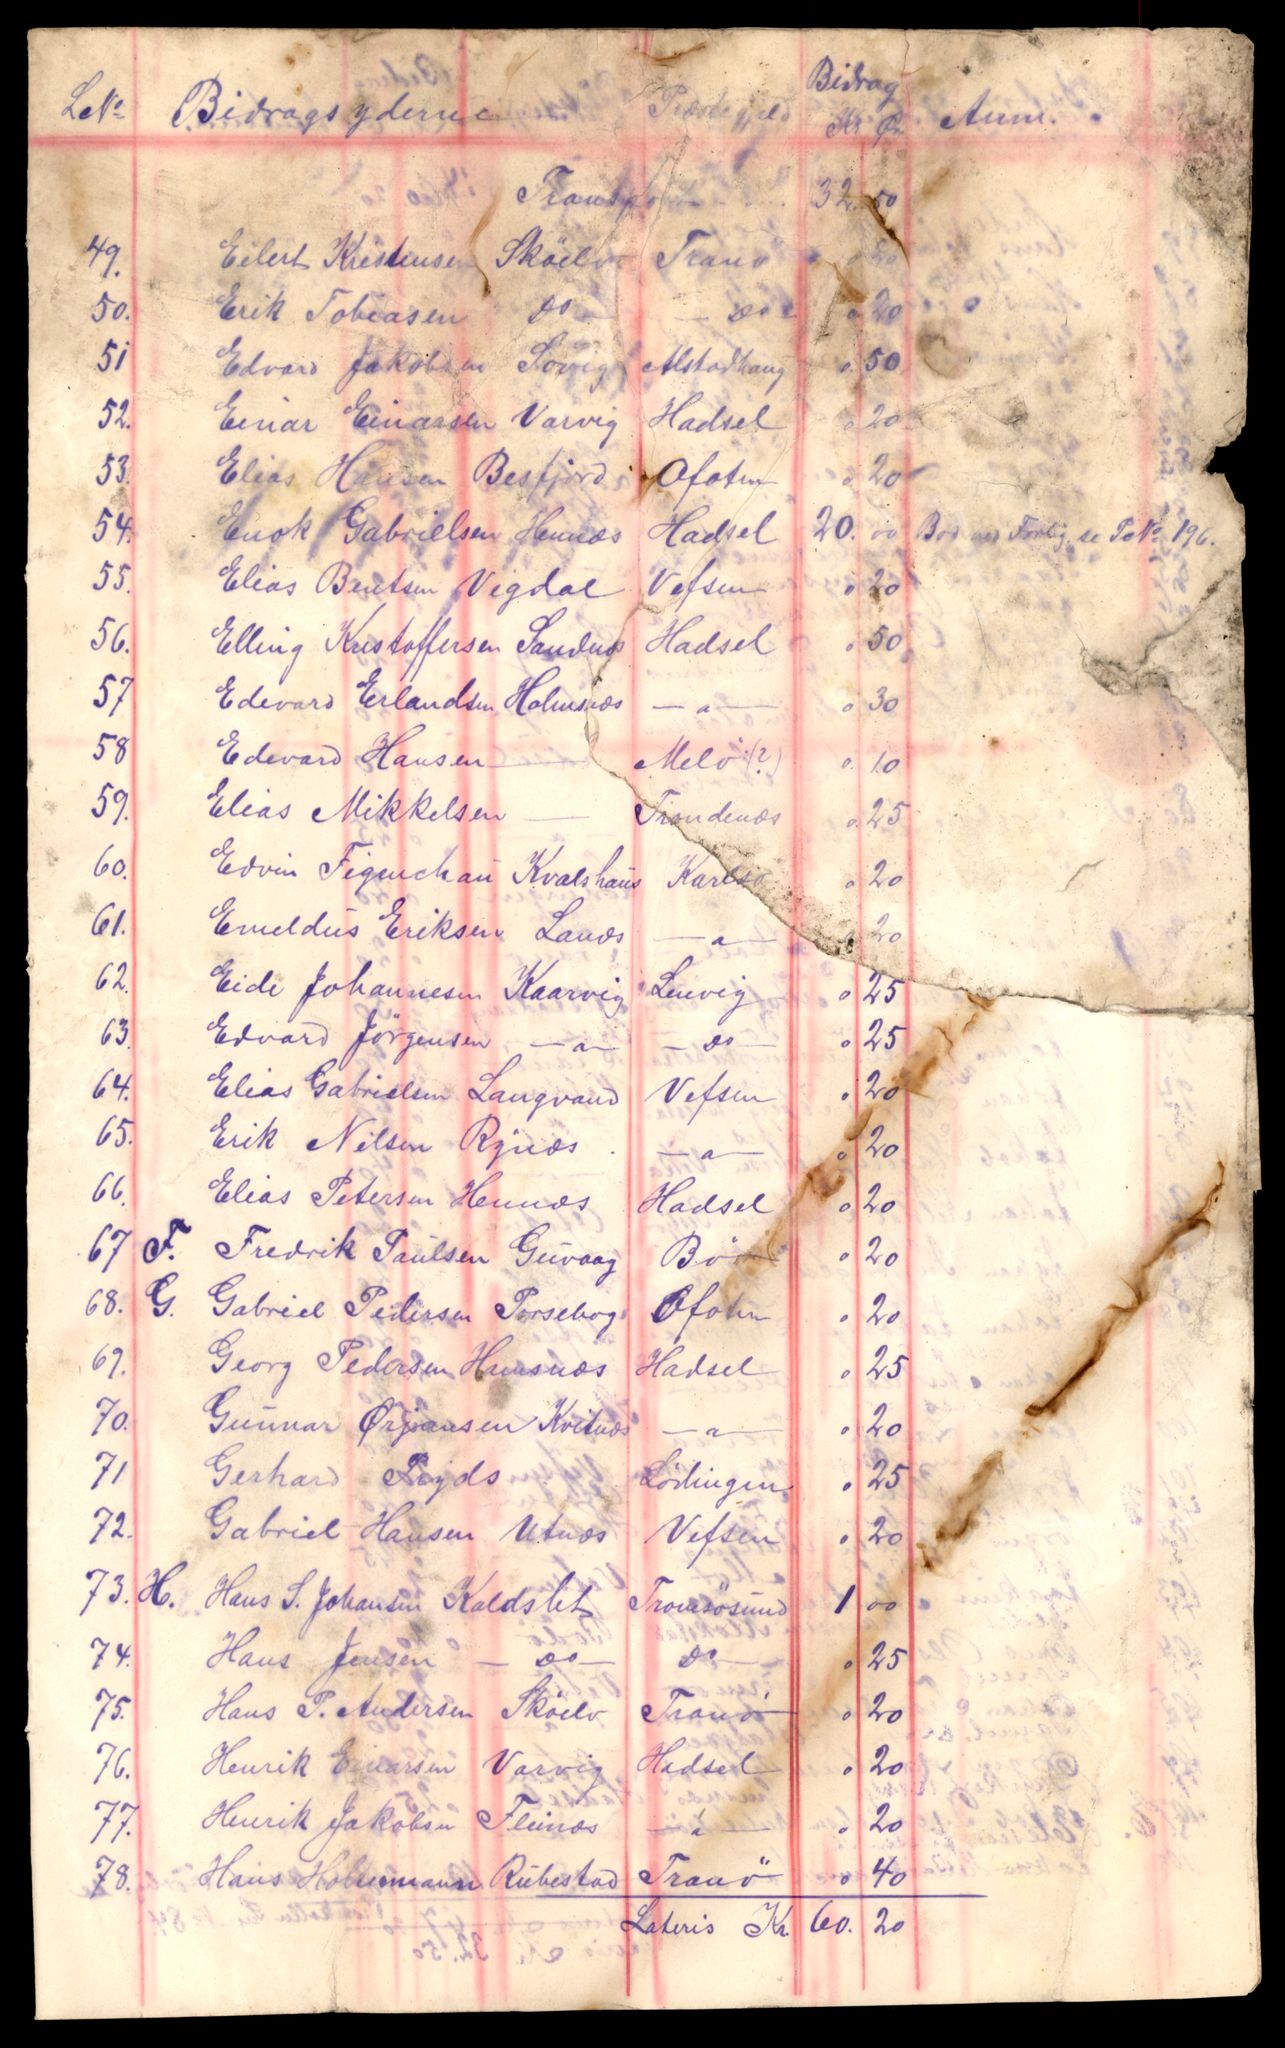 LNo Bidragsyderne Præstegjeld Bidrag Kr Ør Anm.
Transport 32.50
49. Eilert Kristensen Sköelv Tranö " 20
50. Erik Tobiasen Do Do " 20
51 Edvard Jakobsen Sövig Alstadhaug " 50
52. Einar Einarsen Varvig Hadsel " 20
53. Elias Hansen Besfjord Ofoten " 20
54. Enok Gabrielsen Hennæs Hadsel 20. 00 Bod ved Forlig. se No 196.
55. Elias Bentsen Vigdal Vefsen " 20
56. Elling Kristoffersen Sandnæs Hadsel " 50
57 Edevard Erlandsen Holmsnæs — " — " 30
58 Edevard Hansen — Melö (?) " 10
59. Elias Mikkelsen — Trondenæs " 25
60. Edvin Figenschau Kvalshaus Karlsö " 20
61. Emeldus Eriksen Lanæs — " — " 20
62. Eide Johannesen Kaarvig Lenvig " 25
63. Edvard Jörgensen — " — Do " 25
64. Elias Gabrielsen Langvand Vefsen " 20
65. Erik Nilsen Rynæs — " — " 20
66. Elias Petersen Hennæs Hadsel " 20
67 F. Fredrik Paulsen Guvaag Bö " 20
68. G. Gabriel Pedersen Porsebog Ofoten " 20
69. Georg Pedersen Hamsnæs Hadsel " 25
70. Gunnar Ørjansen Kvitnæs — " — " 20
71 Gerhard Ryds Lödingen " 25
72. Gabriel Hansen Utnæs Vefsen " 20
73. H. Hans S. Johansen Kaldslet Tromsösund 1 00
74. Hans Jensen — Do — Do " 25
75. Hans P. Andersen Sköelv Tranö " 20
76. Henrik Einarsen Varvig Hadsel " 20
77. Henrik Jakobsen Fleinæs — " — " 20
78. Hans Holmemann Rubestad Tranö " 40
Lateris Kr. 60. 20